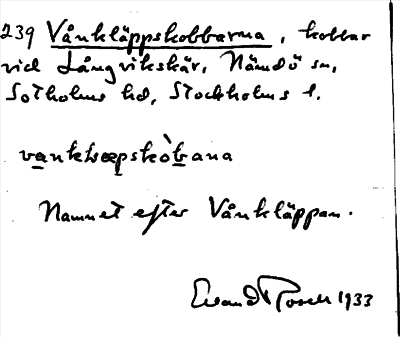 239 Vånkläppskobbarna, kobbar
vid Långvikskär, Nämdö sn,
Sotholms hd, Stockholms l.
Namnet efter Vånkläppen.
1933